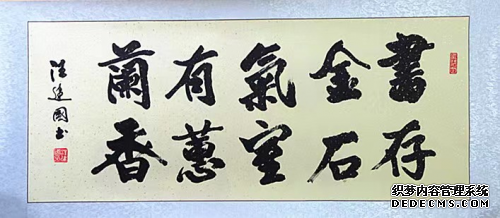 書存
金石
氣室
有蕙
蘭香
汪建國书
织梦内容管理系统
DEDECMS.COM